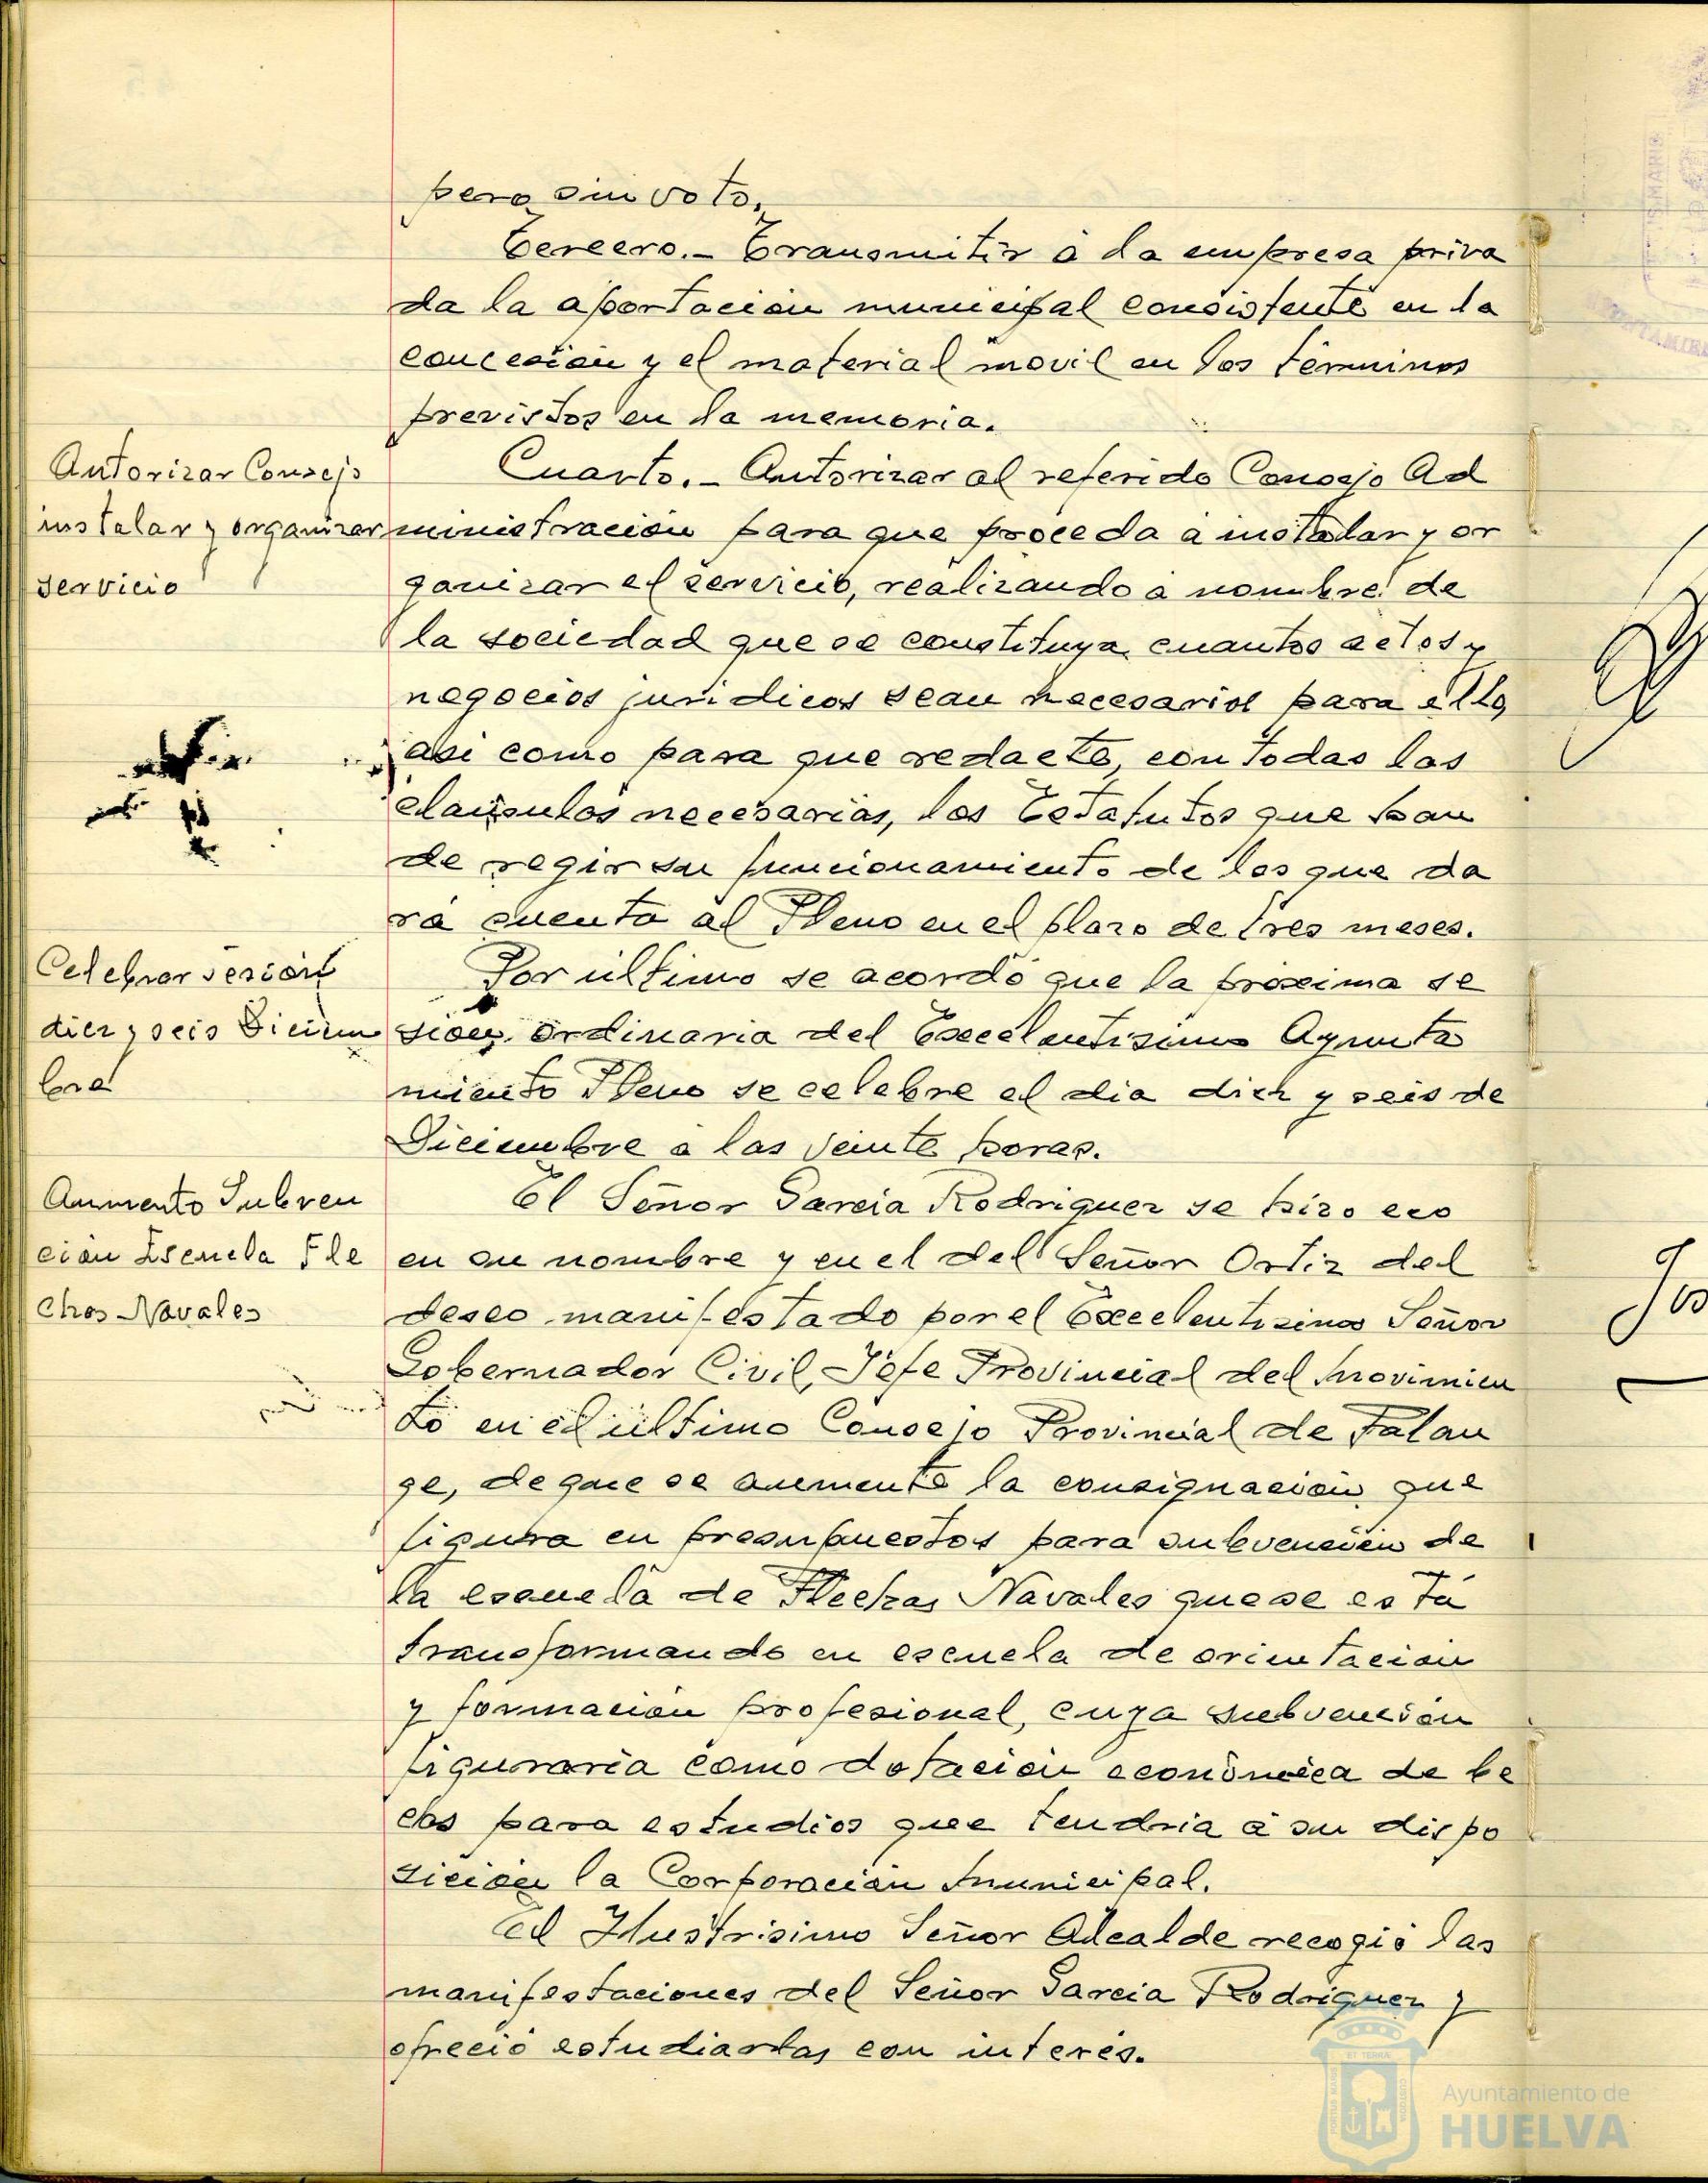 pero sin voto.
Tercero.- Transmitir á la empresa priva
da la aportación municipal consistente en la
concesión y el material movil en los términos
previstos en la memoria.
Autorizar Consejo
instalar y organizar
servicio
Cuarto.- Autorizar al referido Consejo Ad
ministración para que proceda a instalar y or
ganizar el servicio, realizando a nombre de
la sociedad que se constituya, cuantos actos y
negocios juridicos sean necesarios para ello,
asi como para que redacte, con todas las
claúsulas necesarias, los Estatutos que han
de regir su funcionamiento de los que da
rá cuenta al Pleno en el plazo de tres meses.
Celebrar sesión
diez y seis Diciem
bre
Por último se acordó que la proxima se
sion ordinaria del Excelentisimo Ayunta
miento Pleno se celebre el dia diez y seis de
Diciembre a las veinte horas.
Aumento Subven
ción Escuela Fle
chas Navales
El Señor Garcia Rodriguez se hizo eco
en su nombre y en el del Señor Ortiz del
deseo manifestado por el Excelentisimo Señor
Gobernador Civil, Jefe Provincial del Movimien
to en el último Consejo Provincial de Falan
ge, de que se aumente la consignación que
figura en presupuestos para subvención de
la escuela de Flechas Navales que se está
transformando en escuela de orientación
y formación profesional, cuya subvención
figuraria como dotación económica de be
cas para estudios que tendria a su dispo
sición la Corporación Municipal.
El Ilustrisimo Señor Alcalde recogió las
manifestaciones del Señor Garcia Rodriguez y
ofreció estudiarlas con interés.
Ayuntamiento de
HUELVA